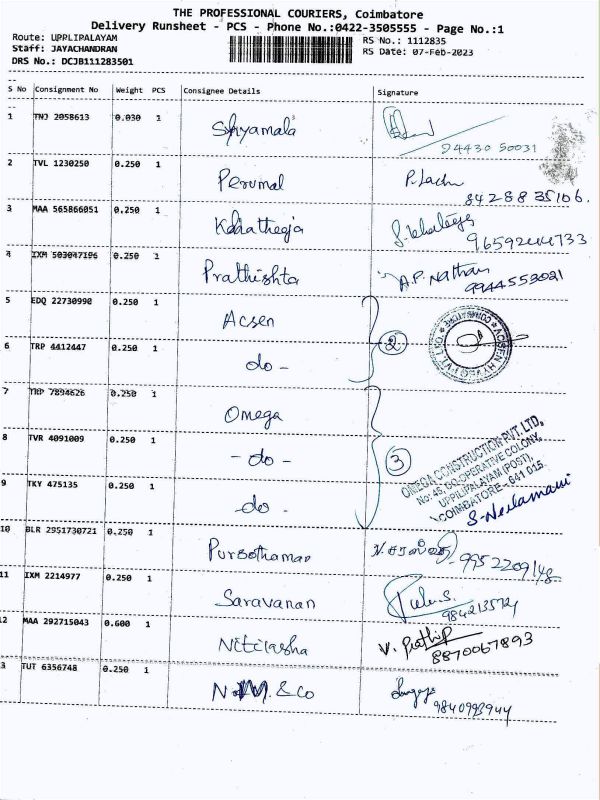 THE PROFESSIONAL COURIERS, Coimbatore
Delivery Runsheet - PCS - Phone No.:0422-3505555 - Page No.:1
Route: UPPLIPALAYAM
RS No.: 1112835
Staff: JAYACHANDRAN
RS Date: 07-Feb-2023
DRS No.: DCJB111283501
S No Consignment No Weight PCS Consignee Details Signature
1 TNJ 2058613 0.030 1 Shyamala
94430 50031
2 TVL 1230250 0.250 1 Perumal
84288 35106.
3 MAA 565866051 0.250 1 Kdhatheeja
4 IXM 503047196 0.250 1 Prathishta A.P. Nathan
9944553021
5 EDQ 22730990 0.250 1 Acsen
6 TRP 4412447 0.250 1 do - 2
7 TRP 7894626 0.250 1 Omega
8 TVR 4091009 0.250 1 - do - 3
OMEGA CONSTRUCTION PVT. LTD,
No: 45, CO-OPERATIVE COLONY,
UPPILIPALAYAM (POST),
COIMBATORE - 641 015.
9 TKY 475135 0.250 1 - do - S-Neelamani
10 BLR 2951730721 0.250 1 Purosothaman
9952209148
11 IXM 2214977 0.250 1 Saravanan
12 MAA 292715043 0.600 1 Nitilasha V. Prathip
8870067893
13 TUT 6356748 0.250 1 N.M. & Co
9840993944